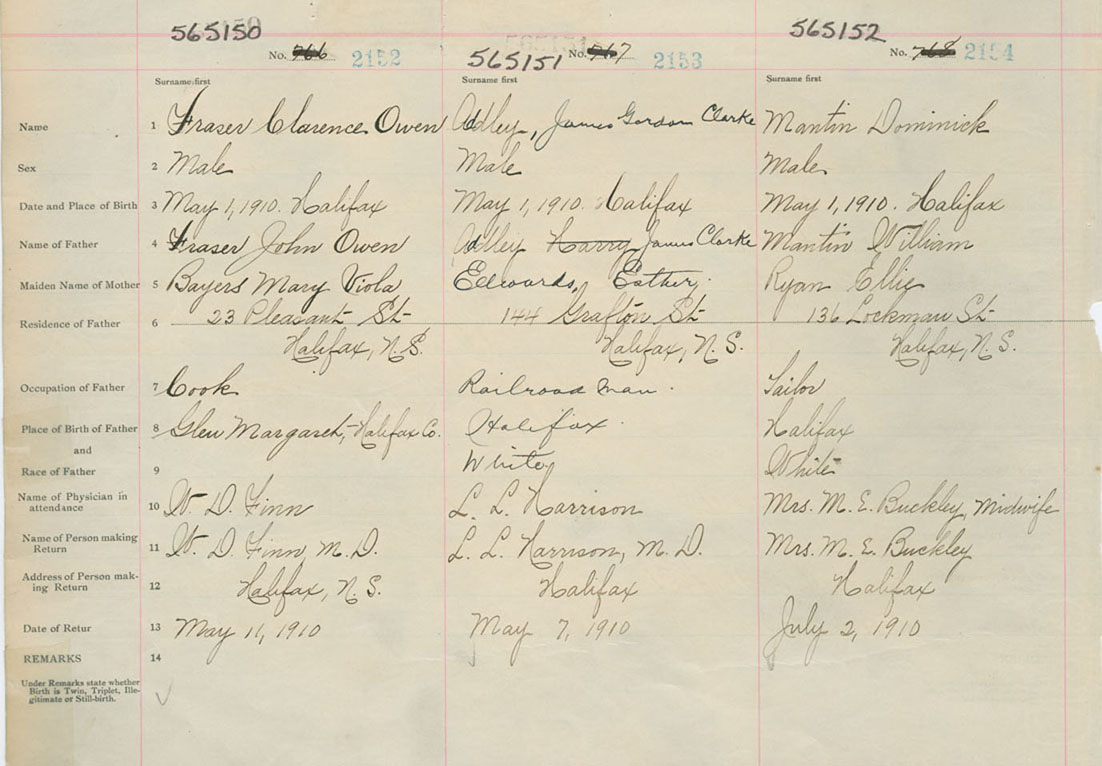 565150
565151
565152
No. 766 2152
No. 767 2153
No. 768 2154
Surname first
Surname first
Surname first
Name 1 Fraser Clarence Owen Adley, James Gordon Clarke Mantin Dominick
Sex 2 Male Male Male
Date and Place of Birth 3 May 1, 1910. Halifax May 1, 1910. Halifax May 1, 1910. Halifax
Name of Father 4 Fraser John Owen Adley Harry James Clarke Mantin William
Maiden Name of Mother 5 Bayers Mary Viola Edwards, Esther. Ryan Ellie
Residence of Father 6 23 Pleasant St 144 Grafton St 136 Lockman St
Halifax, N.S. Halifax, N.S. Halifax, N.S.
Occupation of Father 7 Cook Railroad man. Tailor
Place of Birth of Father 8 Glen Margaret, Halifax Co. Halifax. Halifax
and
Race of Father 9 White White
Name of Physician in
attendance 10 W. D. Finn L. L. Harrison Mrs. M. E. Buckley, Midwife
Name of Person making
Return 11 W. D. Finn, M.D. L. L. Harrison, M.D. Mrs. M. E. Buckley
Address of Person mak-
ing Return 12 Halifax, N.S. Halifax Halifax
Date of Retur 13 May 11, 1910 May 7, 1910 July 2, 1910
REMARKS 14
Under Remarks state whether
Birth is Twin, Triplet, Ille-
gitimate or Still-birth.